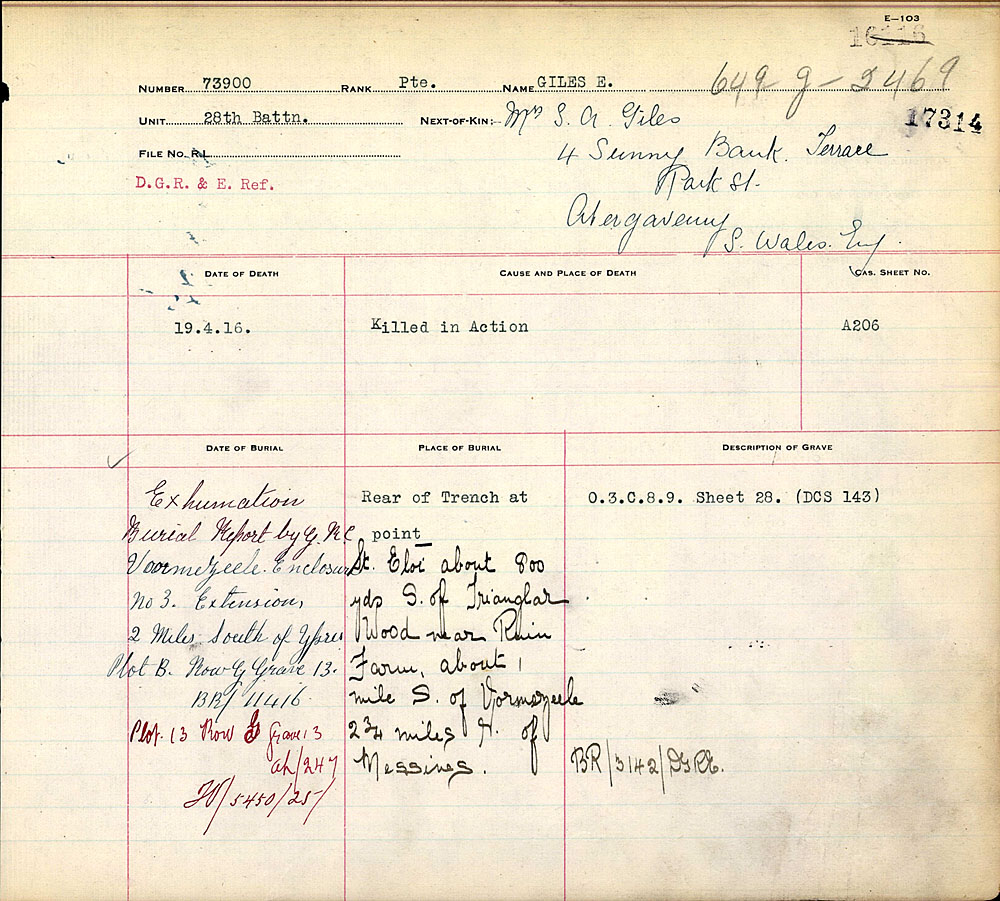 E—103
16116
NUMBER 73900 RANK Pte. NAME GILES E. 649-g-2469
UNIT 28th Battn. NEXT-OF-KIN:- Mrs S. A. Giles 17314
FILE No. R.L 4 Sunny Bank. Terrace
D.G.R. & E. Ref. Park St.
Abergavenny
S. Wales. Eng.
DATE OF DEATH CAUSE AND PLACE OF DEATH CAS. SHEET NO.
19.4.16. Killed in Action A206
DATE OF BURIAL PLACE OF BURIAL DESCRIPTION OF GRAVE
Exhumation Rear of Trench at O.3.C.8.9. Sheet 28. (DCS 143)
Burial Report by G. R.C point
Voormezeele. Enclosure St. Eloi about 800
No 3. Extension, yds S. of Trianglar
2 Miles South of Ypres Wood near Ruin
Plot B. Row G Grave 13. Farm, about 1
BR/11416 mile S. of Vormezeele
Plot. 13 Row G Grave 13 2¾ miles N. of
ah/247 Messines. BR/3142/DGRE.
/5450/25/